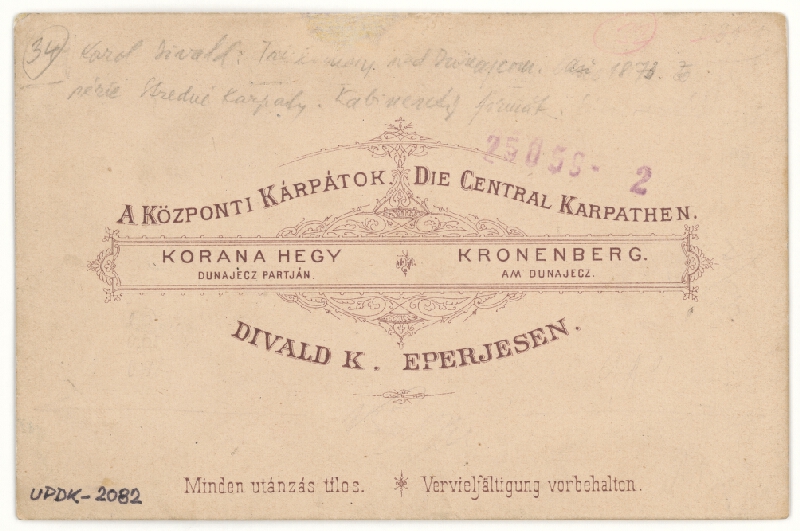 34 Karol Divald: Tri koruny nad Dunajcom. Asi 1873. Zo
série Stredné Karpaty. Kabinetný formát.
25056- 2
A KÖZPONTI KÁRPÁTOK. DIE CENTRAL KARPATHEN.
KORANA HEGY KRONENBERG.
DUNAJECZ PARTJÁN. AM DUNAJECZ.
DIVALD K. EPERJESEN.
Minden utánzás tilos. Vervielfältigung vorbehalten.
UPDK-2082